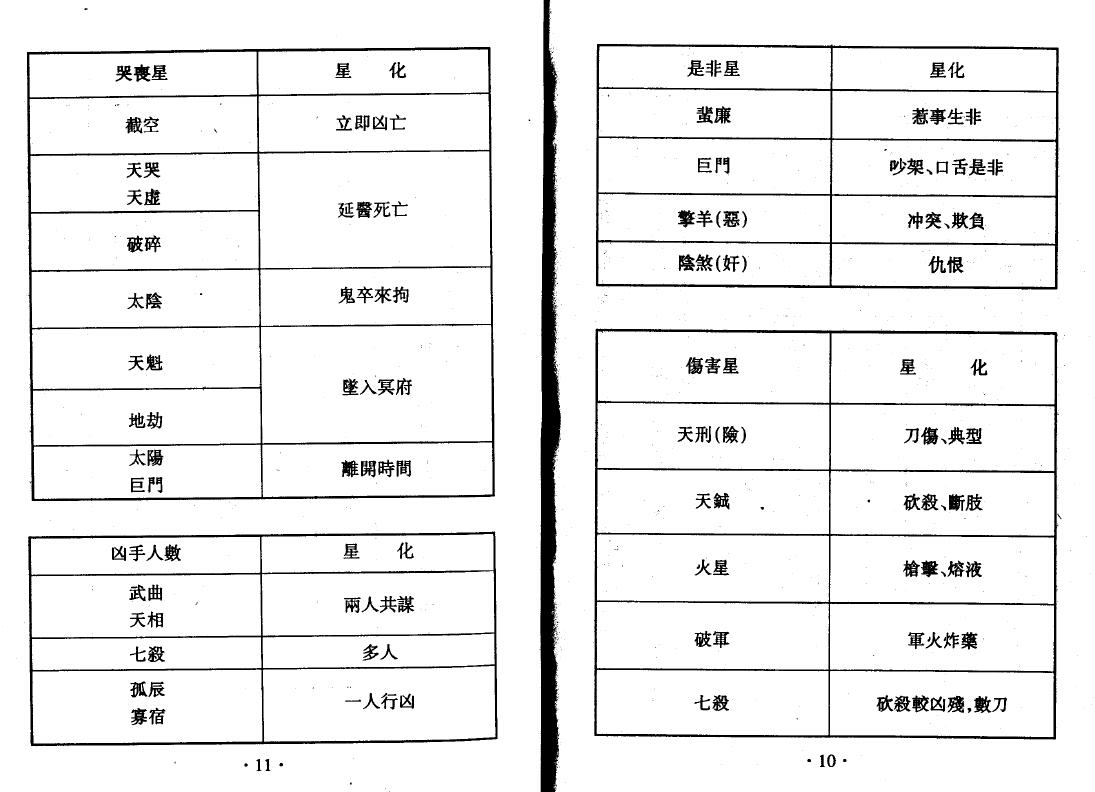 是非星 星化
蜚廉 惹事生非
巨門 吵架、口舌是非
擎羊(惡) 冲突、欺負
陰煞(奸) 仇恨
傷害星 星 化
天刑(險) 刀傷、典型
天鉞 砍殺、斷肢
火星 槍擊、熔液
破軍 軍火炸藥
七殺 砍殺較凶殘,數刀
·10·
哭喪星 星 化
截空 立即凶亡
天哭
天虛
延醫死亡
破碎
太陰 鬼卒來拘
天魁
墜入冥府
地劫
太陽
巨門
離開時間
凶手人數 星 化
武曲
天相
兩人共謀
七殺 多人
孤辰
寡宿
一人行凶
·11·